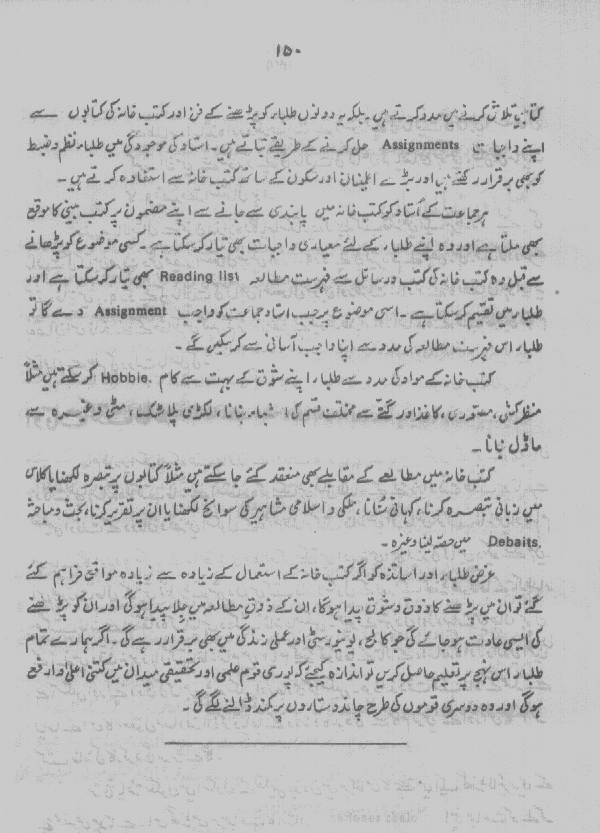 ۱۵۰
کتابیں تلاش کرنے میں مدد کرتے ہیں۔ بلکہ یہ دونوں طلباء کو پڑھنے کے فن اور کتب خانہ کی کتابوں سے
اپنے واجبات Assignments حل کرنے کے طریقے بتاتے ہیں۔ استاد کی موجودگی میں طلباء نظم و ضبط
کو بھی برقرار رکھتے ہیں اور بڑے اطمینان اور سکون کے ساتھ کتب خانہ سے استفادہ کرتے ہیں۔
ہر جماعت کے استاد کو کتب خانہ میں پابندی سے جانے سے اپنے مضمون پر کتب بینی کا موقع
بھی ملتا ہے اور وہ اپنے طلباء کے لئے معیاری واجبات بھی تیار کر سکتا ہے۔ کسی موضوع کو پڑھانے
سے قبل وہ کتب خانہ کی کتب و رسائل سے فہرست مطالعہ Reading list بھی تیار کر سکتا ہے اور
طلباء میں تقسیم کر سکتا ہے۔ اسی موضوع پر جب استاد جماعت کو واجب Assignment دے گا تو
طلباء اس فہرست مطالعہ کی مدد سے اپنا واجب آسانی سے کر سکیں گے۔
کتب خانہ کے مواد کی مدد سے طلباء اپنے شوق کے بہت سے کام Hobbie. کر سکتے ہیں مثلاً
منظر کشی، مصوری، کاغذ اور گتے سے مختلف قسم کی اشیاء بنانا، لکڑی پلاسٹک، مٹی وغیرہ سے
ماڈل بنانا۔
کتب خانہ میں مطالعے کے مقابلے بھی منعقد کئے جا سکتے ہیں مثلاً کتابوں پر تبصرہ لکھنا یا کلاس
میں زبانی تبصرہ کرنا، کہانی سُنانا، ملکی و اسلامی مشاہیر کی سوانح لکھنا یا ان پر تقریر کرنا، بحث و مباحثہ
Debaits, میں حصہ لینا وغیرہ۔
غرض طلباء اور اساتذہ کو اگر کتب خانہ کے استعمال کے زیادہ سے زیادہ مواقع فراہم کئے
گئے تو ان میں پڑھنے کا ذوق و شوق پیدا ہوگا، ان کے ذوقِ مطالعہ میں جِلا پیدا ہوگی اور ان کو پڑھنے
کی ایسی عادت ہو جائے گی جو کالج، یونیورسٹی اور عملی زندگی میں بھی برقرار رہے گی۔ اگر ہمارے تمام
طلباء اس نہج پر تعلیم حاصل کریں تو اندازہ کیجئے کہ پوری قوم علمی اور تحقیقی میدان میں کتنی اعلیٰ و ارفع
ہوگی اور وہ دوسری قوموں کی طرح چاند و ستاروں پر کمند ڈالنے لگے گی۔